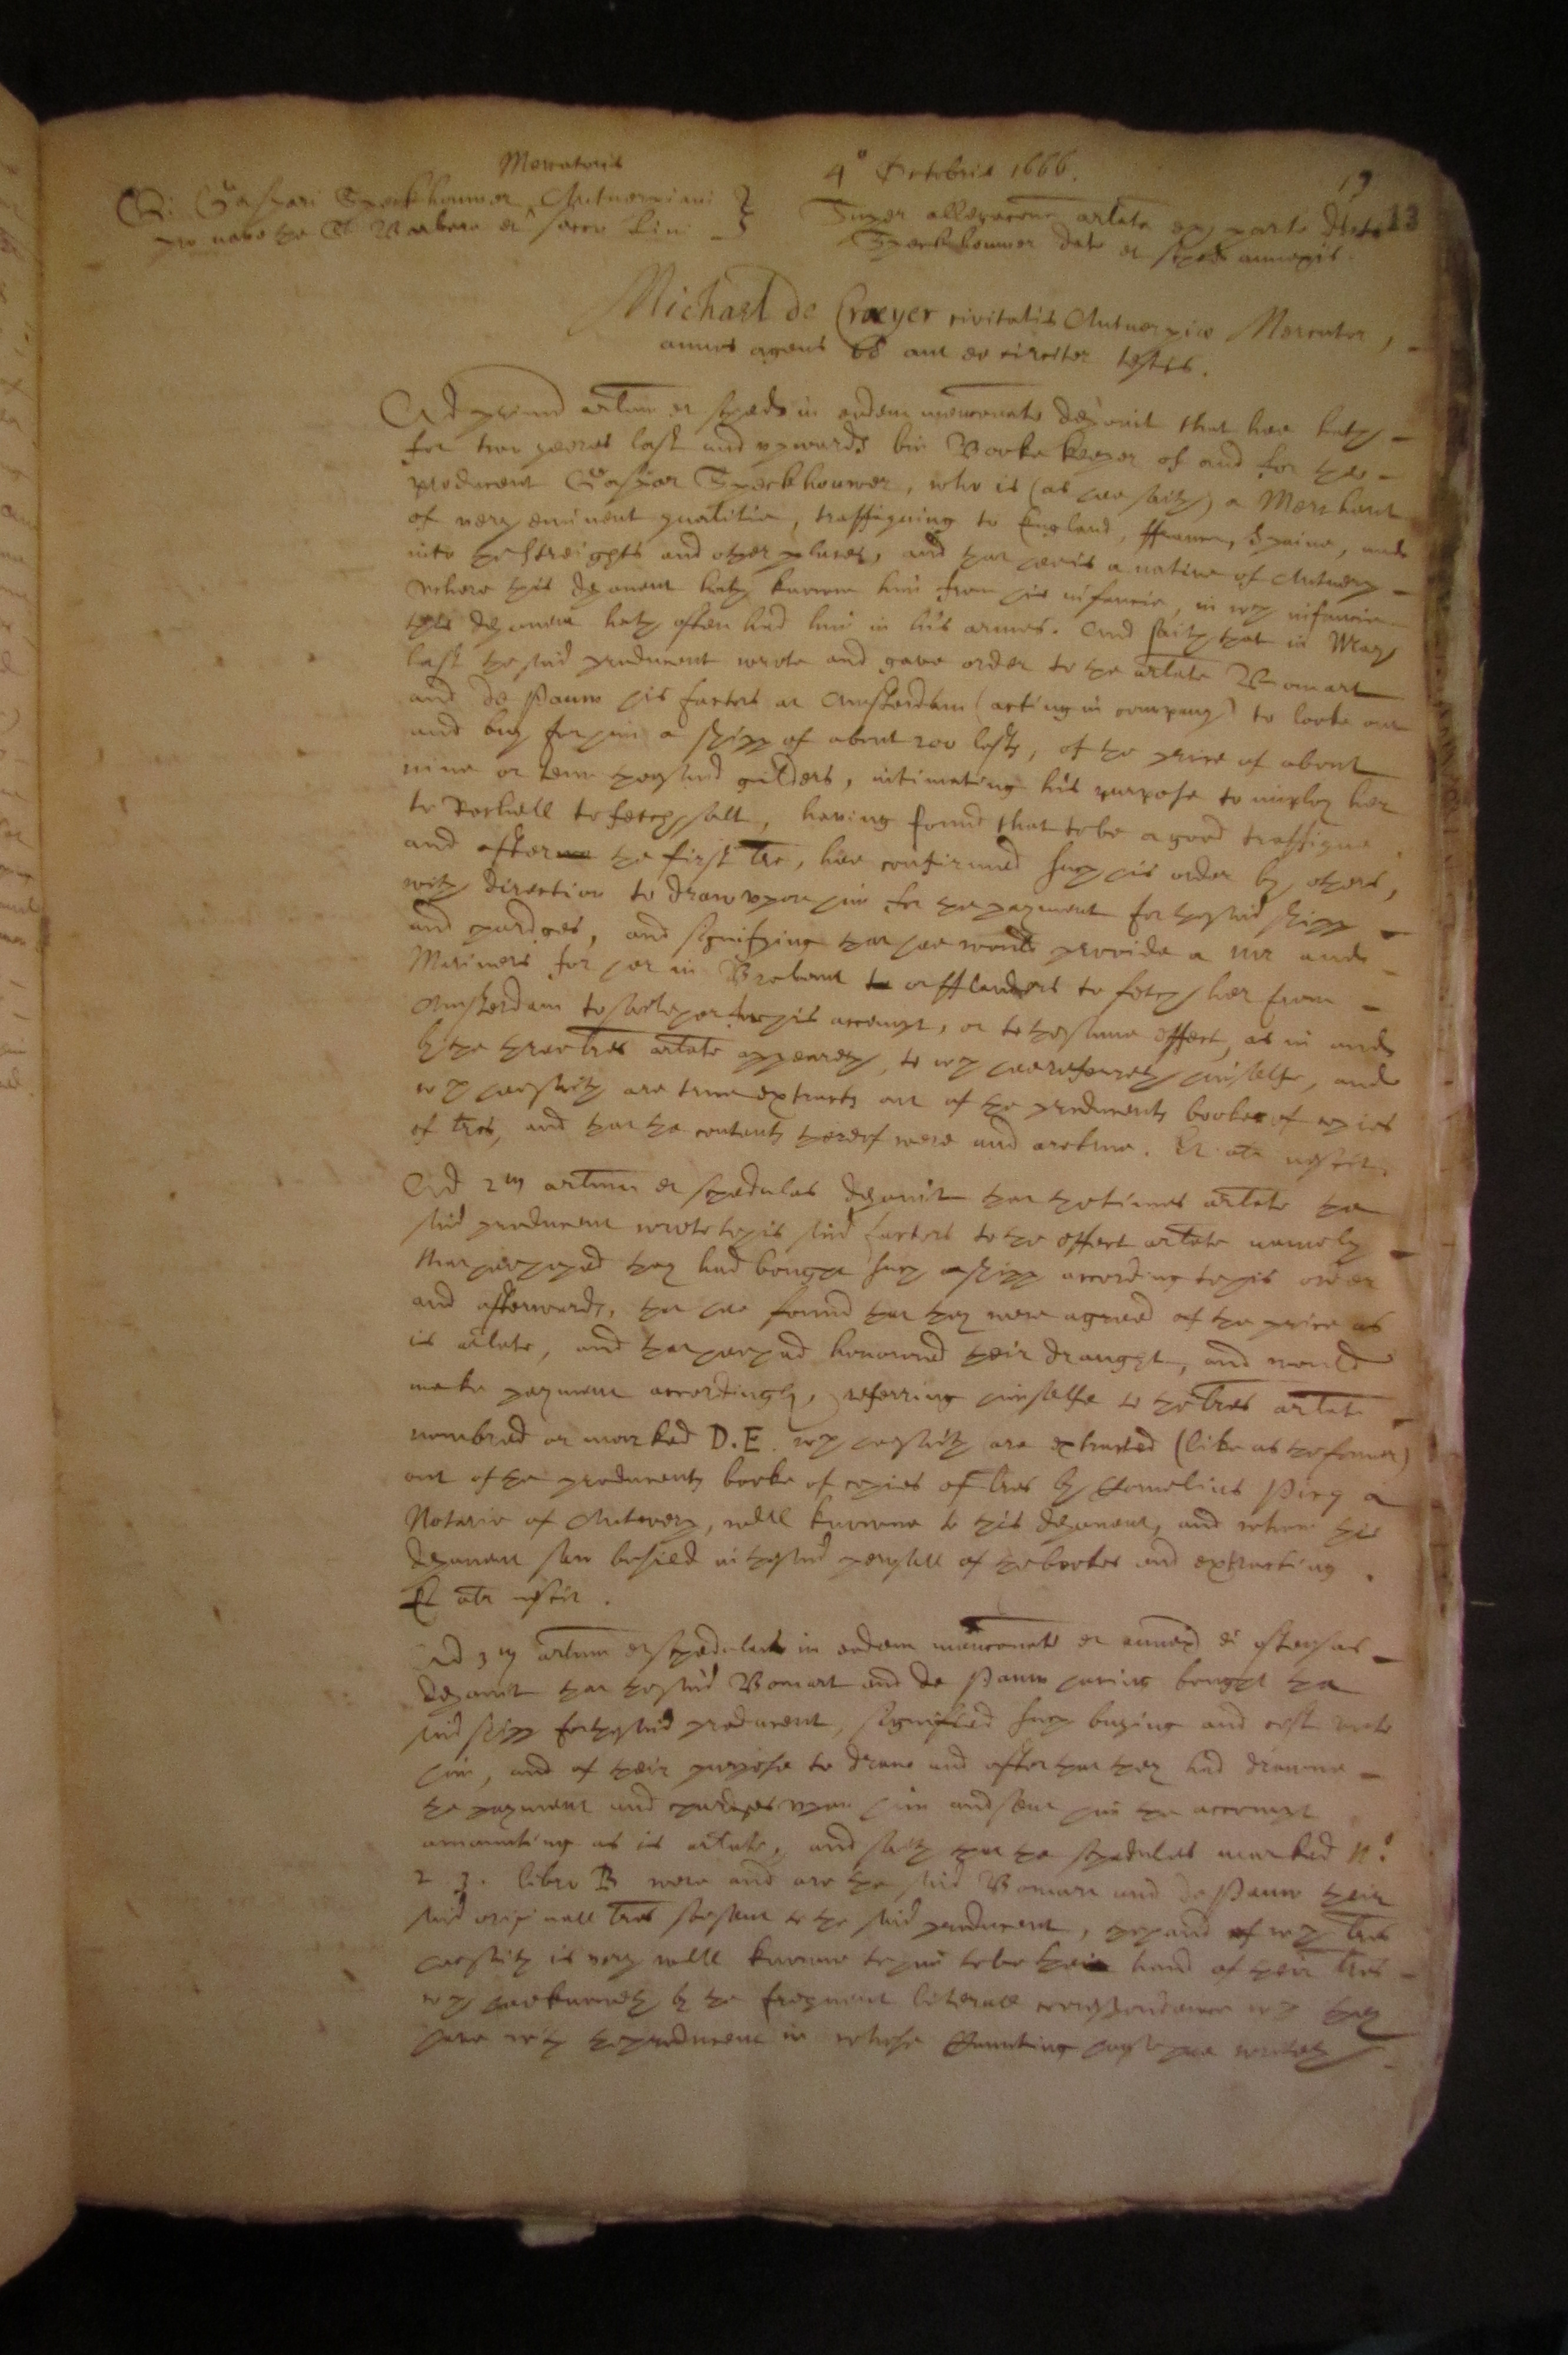 Mercatoris
4° Octobris 1666.
13
Gaspari Speckhouwer Antuerpiani
pro nave the St Barbara et sacco lini
Super allegacone arlate ex parte dicti
Speckhouwer date et sched annexis.
Michael de Crayer civitatis Antuerpiæ Mercator,
annos agens 68 aut eo circiter testis.
Ad primum arlum et scheds in eodem mencionats deponit that hee hath
for two yeeres last and upwards bin Booke keeper of and for the
producent Gaspar Speckhouwer, who is (as hee saith) a Merchant
of very eminent qualitie, traffiquing to England, ffrance, Spaine, and
into the Streights and other places, and that hee is a native of Antwerp
where this deponent hath knowne him from his infancie, in wch infancie
this deponent hath often had him in his armes. And saith that in May
last the said producent wrote and gave order to the arlate Bomart
and de Pauw his factors at Amsterdam (acting in company) to looke out
and buy for him a shipp of about 200 lasts, of the price of about
nine or tenn thousand guilders, intimating his purpose to imploy her
to Rochell to fetch salt, having found that to be a good traffique.
and after the first lre, hee confirmed such his order by others,
with direction to draw upon him for the payment for the said shipp
and chardges, and signifying that hee would provide a mr and
Mariners for her in Brabant or fflanders to fetch her from
Amsterdam to saile her for his accompt, or to the same effect, as in and
by the three lres arlate appeareth, to wch hee referreth himselfe, and
wch hee saith are true extracts out of the producents booke of copies
of lres, and that the contents thereof were and are true. Et alr nescit.
Ad 2m arlum et schedulas deponit that the times arlate the
said producent wrote to his said factors to the effect arlate namely
that hee hoped they had bought such a shipp according to his order
and afterwards, that hee found that they were agreed of the price as
is arlate, and that hee had honoured their draught, and would
make payment accordingly, referring himselfe to the lres arlate
nombred or marked D.E. wch hee saith are extracted (like as the former)
out of the producents booke of copies of lres by Cornelius a
Notarie of Antwerp, well knowne to this deponent, and whom this
deponent saw busied in the said perusall of the bookes and extracting.
Et alr nescit.
Ad 3m arlum et schedulas in eodem mencionats et annex ei ostensas
deponit that the said Bomart and de Pauw having bought the
said shipp for the said producent, signified such buying and cost unto
him, and of their purpose to draw and after that they had drawne
the payment and chardges upon him and sent him the accompt
amounting as is arlate, and saith that the schedules marked No.
2. 3. libro B were and are the said Bomart and de Pauw their
said originall lres soe sent to the said producent, the hand of wch lres
hee saith is very well knowne to him to be the hand of their lres
wch hee knoweth by the frequent literall correspondence wch they
have with the producent in whose Counting house hee writeth